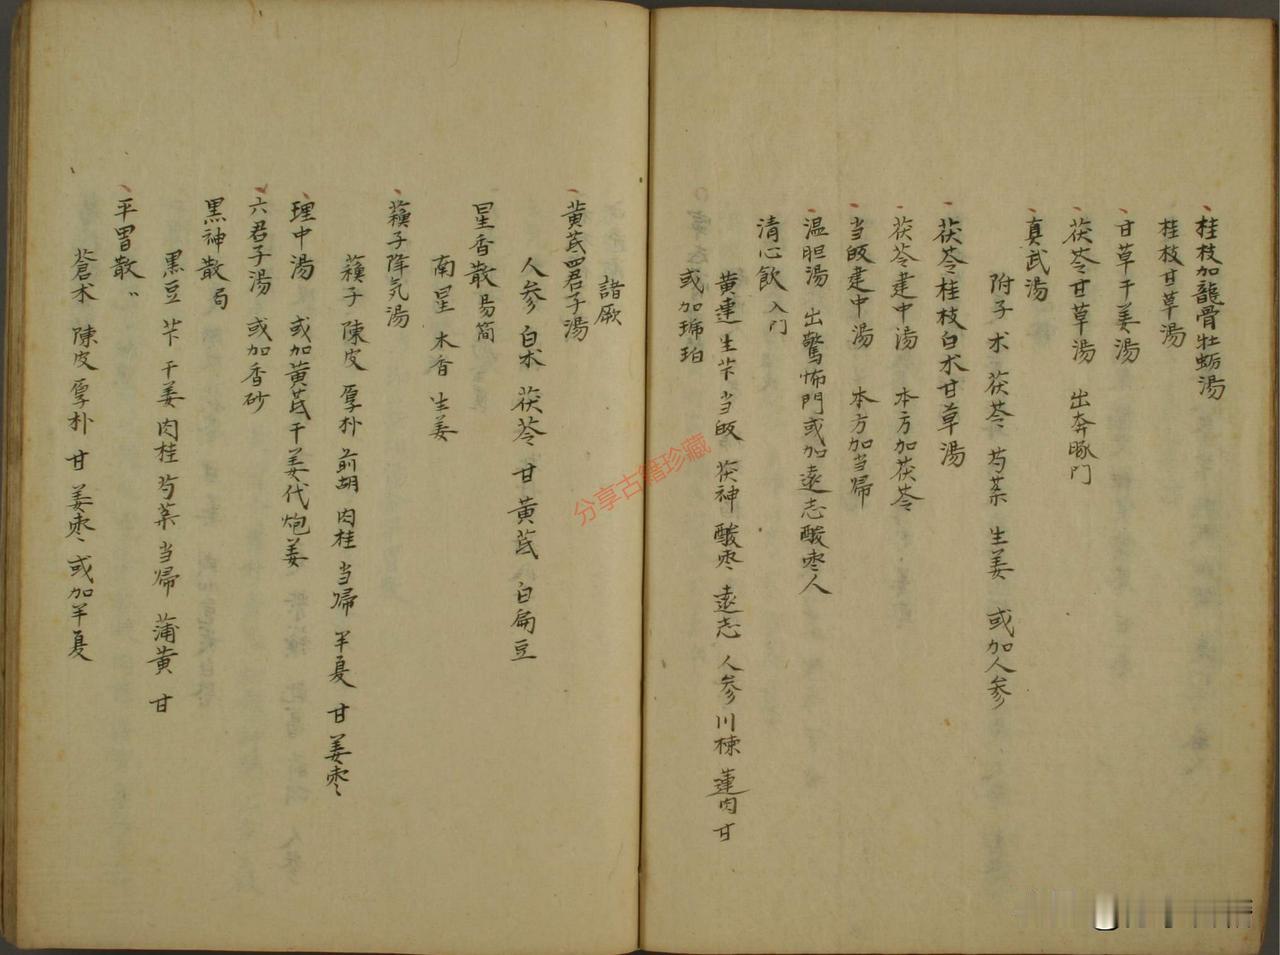 桂枝加龍骨牡蛎湯
桂枝甘草湯
甘草干姜湯
茯苓甘草湯 出奔豚门
真武湯
附子 朮 茯苓 芍薬 生姜 或加人参
茯苓桂枝白朮甘草湯
茯苓建中湯 本方加茯苓
当皈建中湯 本方加当帰
温胆湯 出驚怖門或加遠志酸枣人
清心飲 入门
黄連 生芐 当皈 茯神 酸枣 遠志 人参 川楝 蓮肉 甘
或加琥珀
諸厥
黄芪四君子湯
人参 白朮 茯苓 甘 黄芪 白扁豆
星香散 易简
南星 木香 生姜
蘓子降気湯
蘓子 陳皮 厚朴 前胡 肉桂 当帰 半夏 甘 姜枣
理中湯 或加黄芪干姜代炮姜
六君子湯 或加香砂
黒神散 局
黒豆 芐 干姜 肉桂 芍薬 当帰 蒲黄 甘
平胃散
蒼朮 陳皮 厚朴 甘 姜枣 或加半夏
分享古籍珍藏